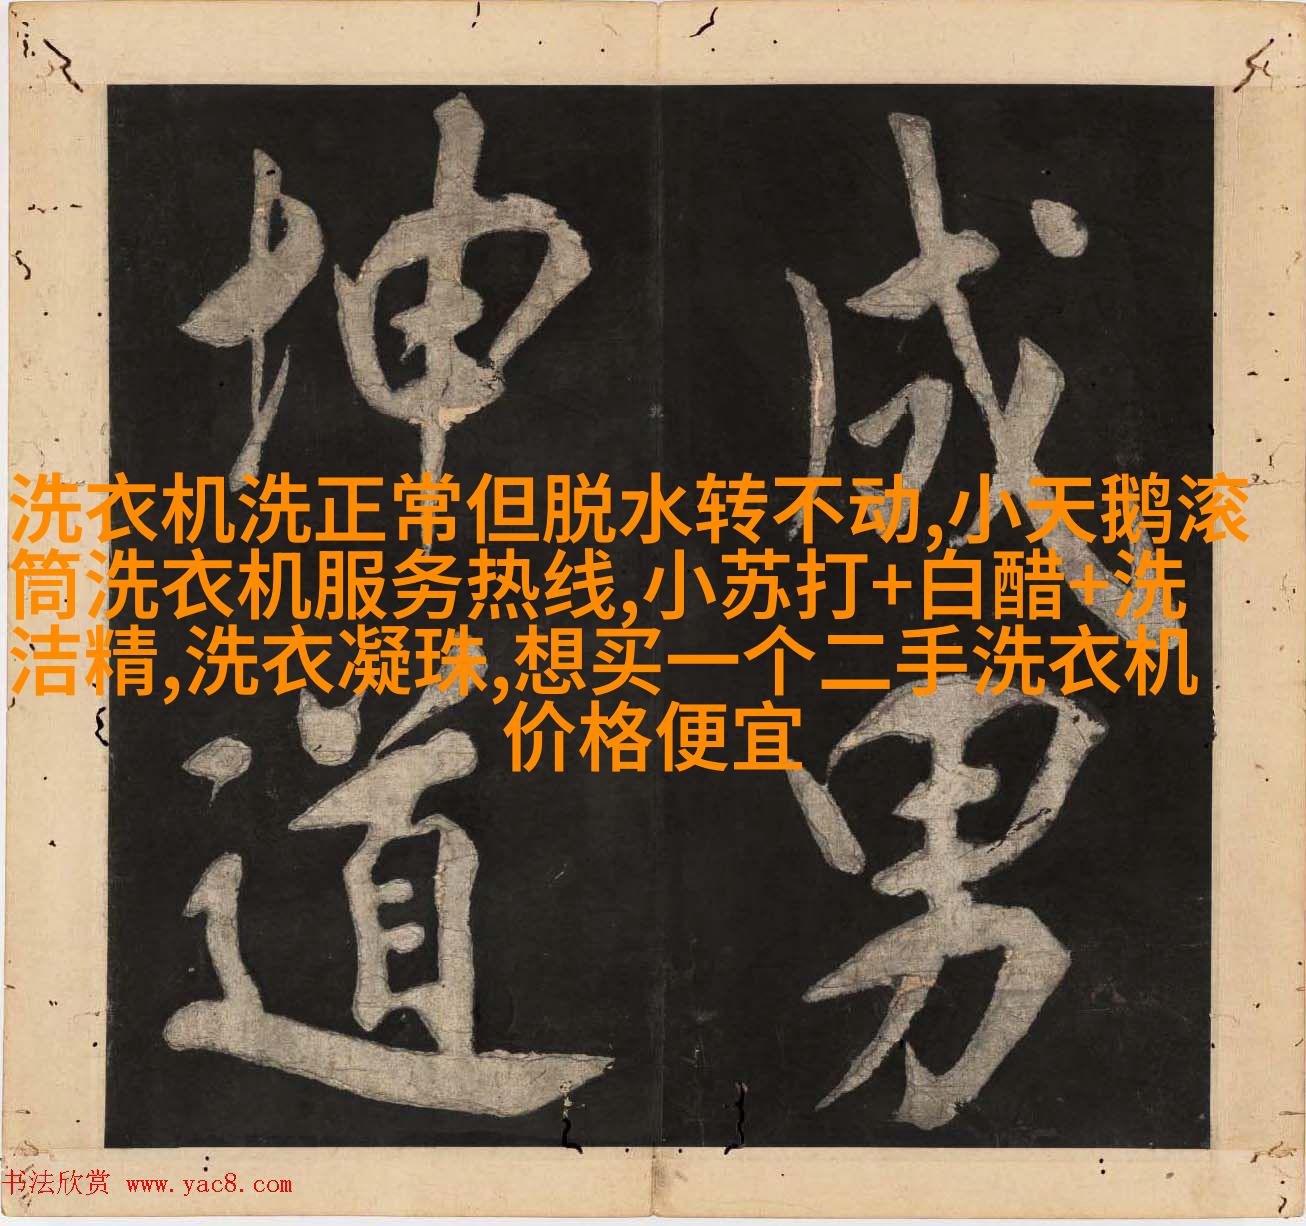 成男
坤道
洗衣机洗正常但脱水转不动,小天鹅滚
筒洗衣机服务热线,小苏打+白醋+洗
洁精,洗衣凝珠,想买一个二手洗衣机
价格便宜
书法欣赏 www.yac8.com